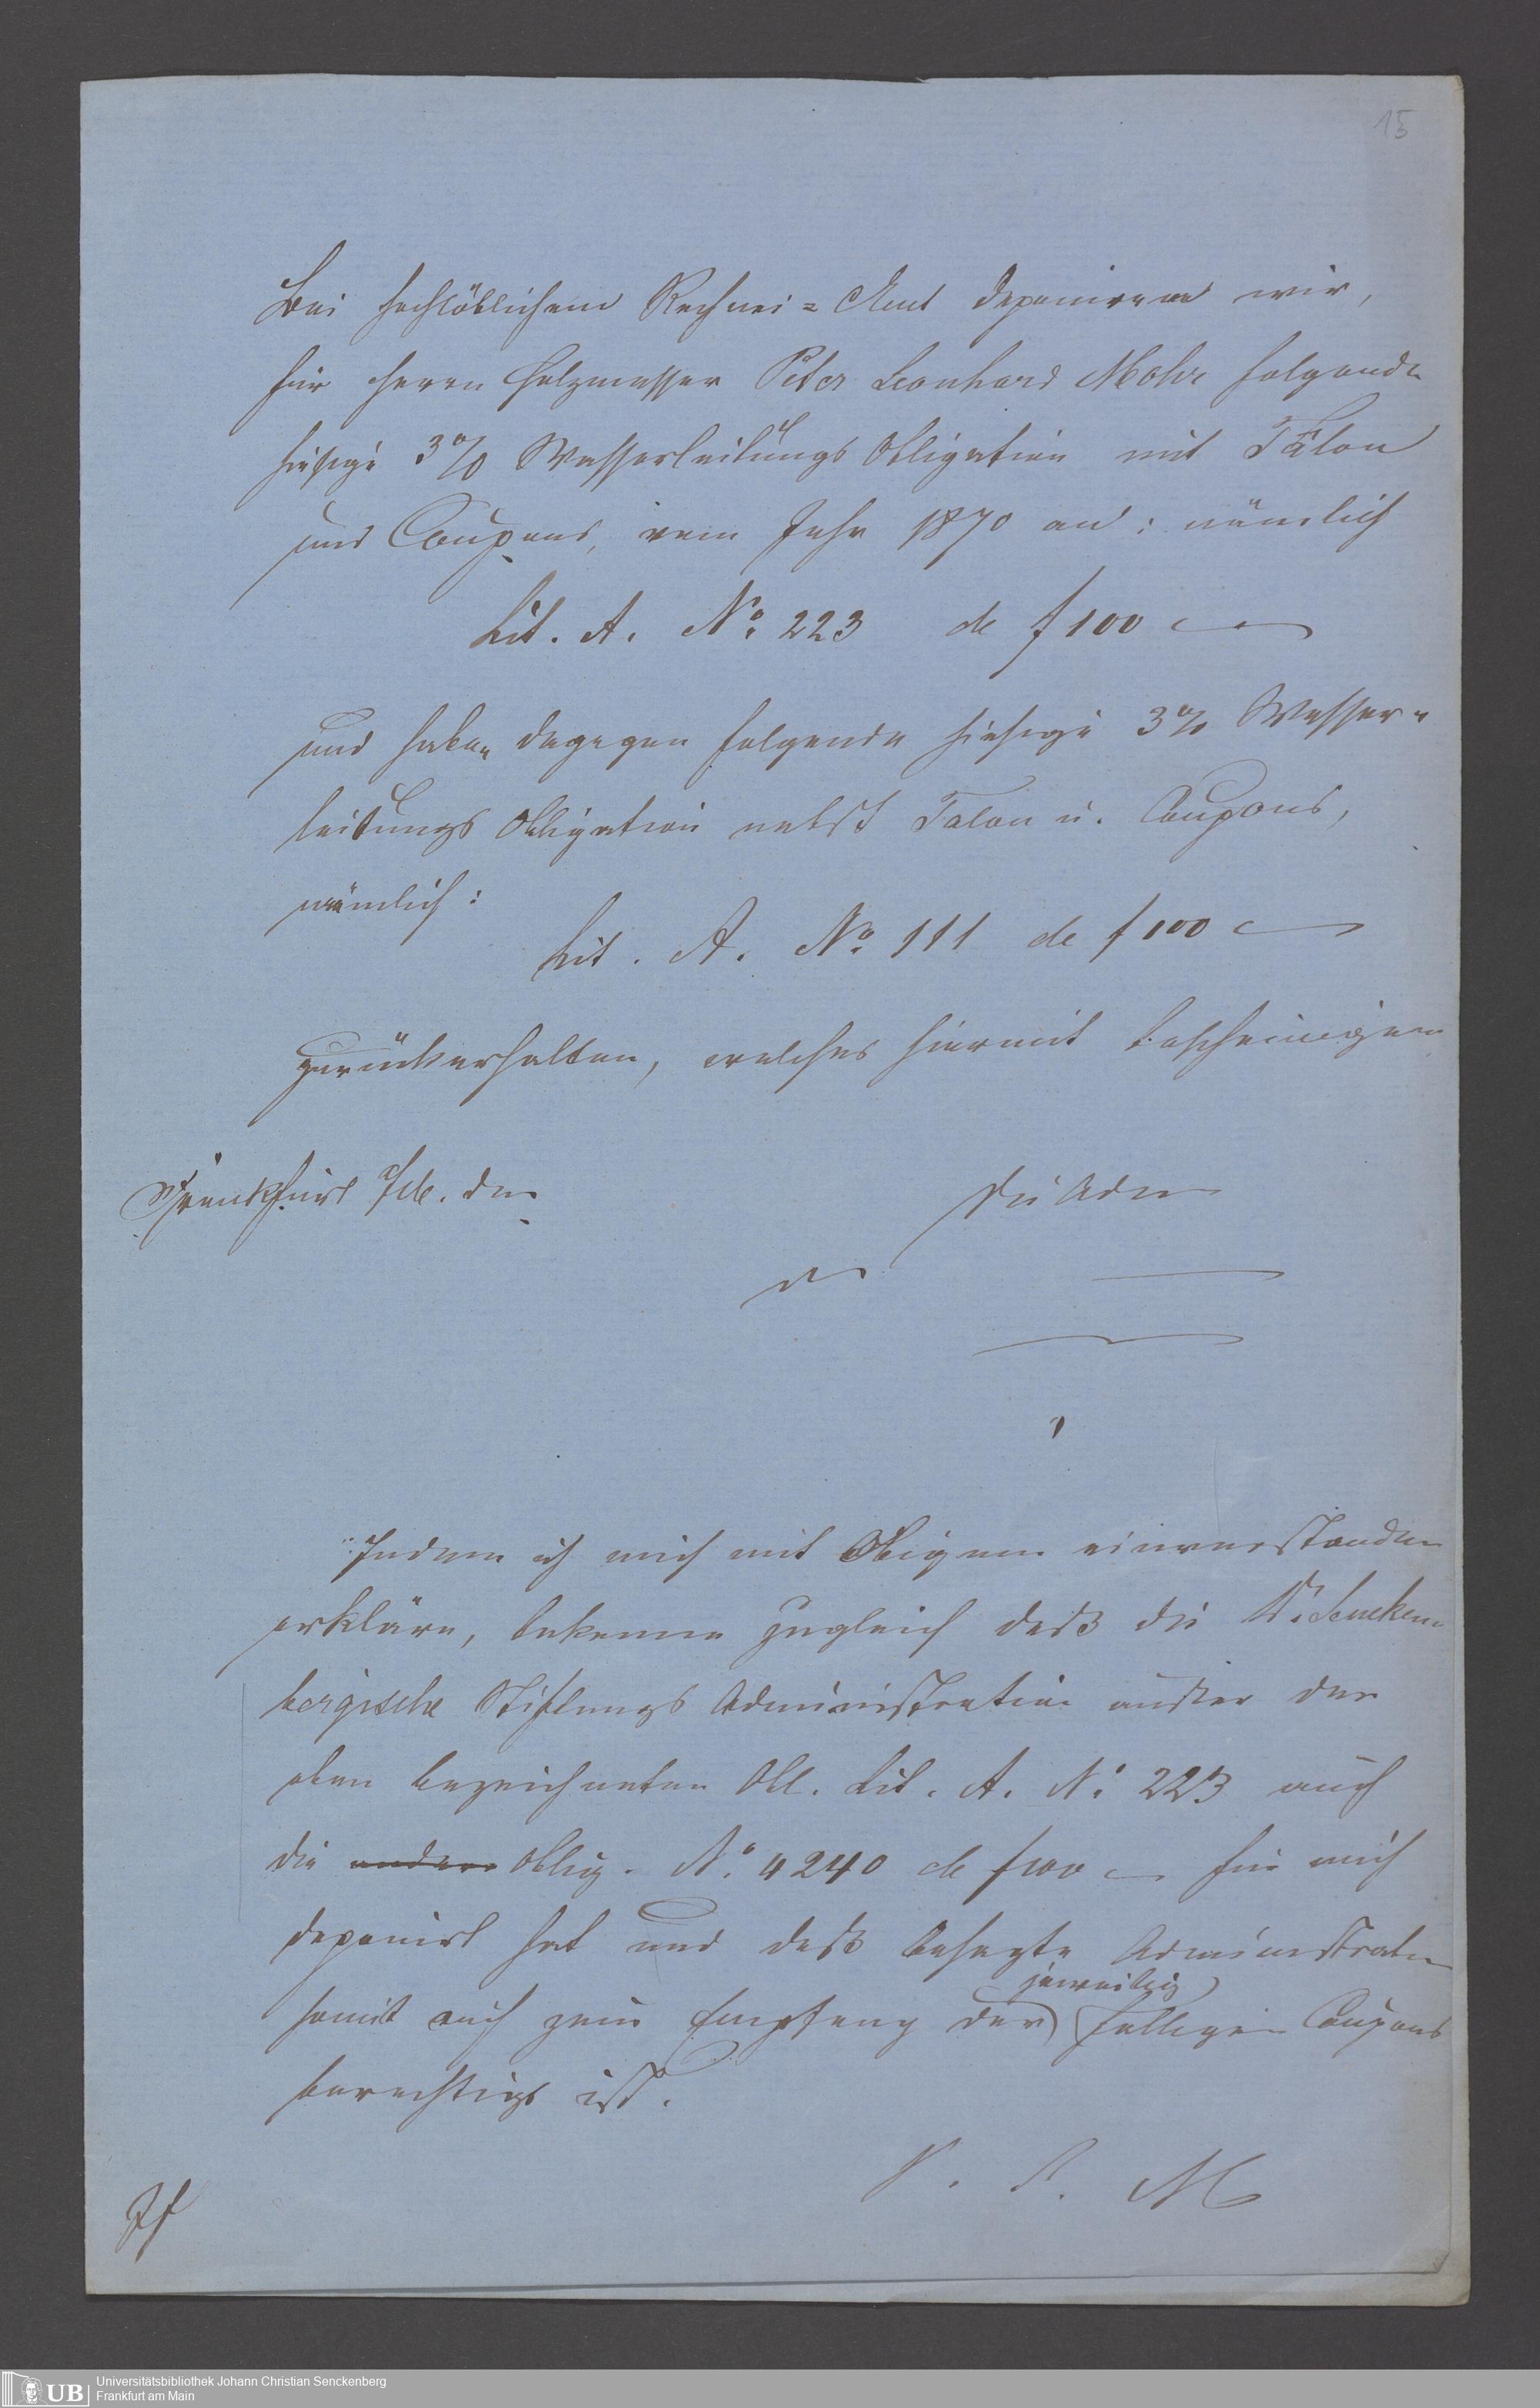 15
Bei hochlöblichem Rechnei=Amt deponiren wir,
für Herrn Holzmesser Peter Leonhard Mohr folgende
hiesige 3% Wasserleitungs Obligation mit Talon
und Coupons, vom Jahr 1870 an: nämlich
Lit. A. No. 223 de f 100 —
und haben dagegen folgende hiesige 3% Wasser-
leitungs Obligation nebst Talon u. Coupons,
nämlich:
Lit. A. No. 111 de f 100 —
zurückerhalten, welches hiermit bescheinigen
Frankfurt a/M. den
Die Adm
Indem ich mich mit Obigem einverstanden
erkläre, bekenne zugleich daß die Dr. Senken-
bergische Stiftungs Administration außer der
oben bezeichneten Obl. Lit. A. No. 223 auch
die andere Oblig. No. 4240 de f 100 — für mich
deponirt hat und daß besagte Administratn
somit auch zum Empfang der jeweilig fälligen Coupons
berechtigt ist.
P. L. M